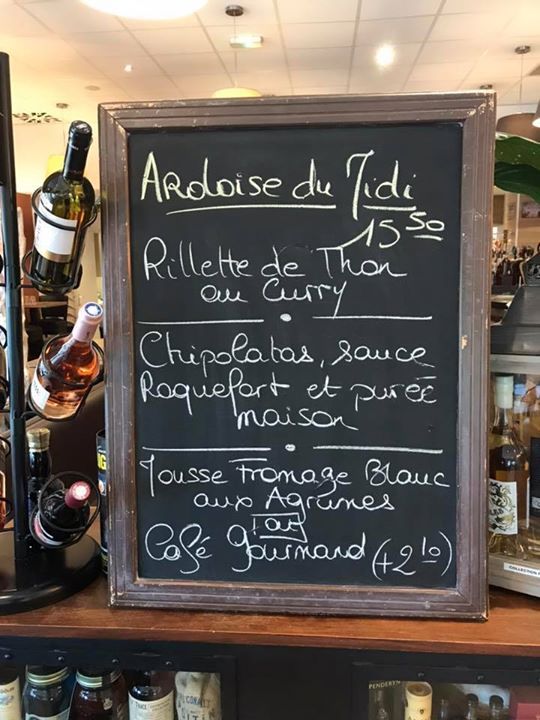 Ardoise du Midi
15 50
Rillette de Thon
au Curry
Chipolatas, sauce
Roquefort et purée
maison
Mousse Fromage Blanc
aux Agrumes
ou
Café gourmand (+2 10)
PENDERYN